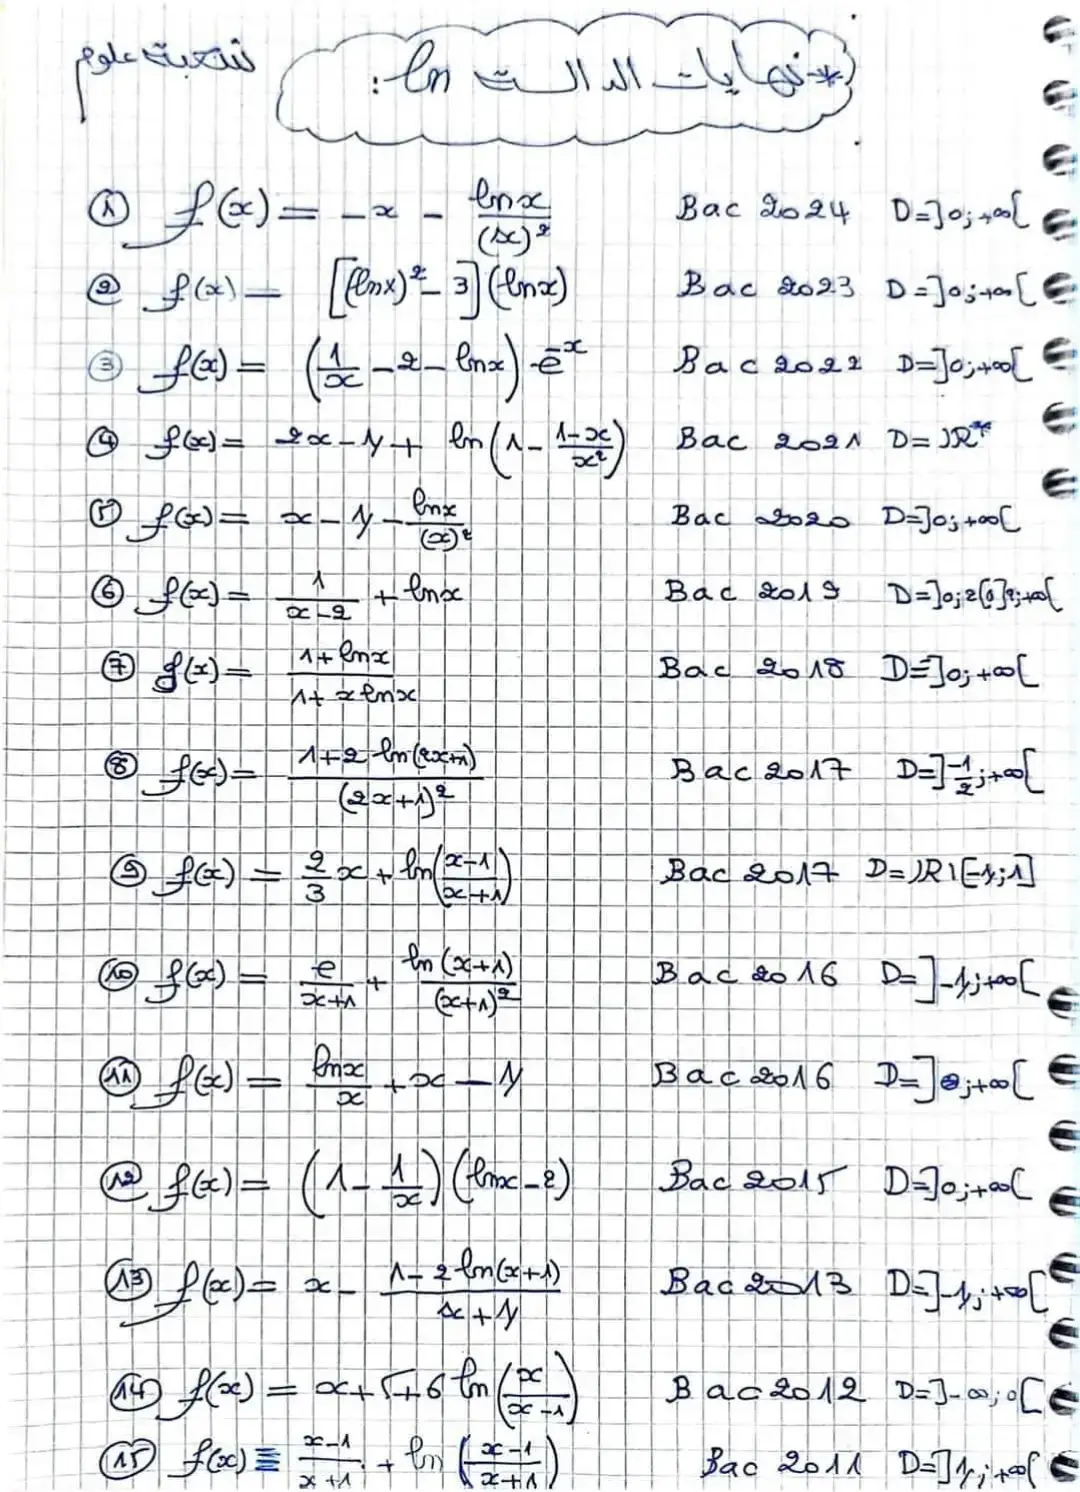 شعبة علوم
* نهايات الدالة ln :
① f(x) = -x - lnx/(x)² Bac 2024 D=]0;+∞[
② f(x) = [(lnx)² - 3](lnx) Bac 2023 D=]0;+∞[
③ f(x) = (1/x - 2 - lnx) · e⁻ˣ Bac 2022 D=]0;+∞[
④ f(x) = 2x - 1 + ln(1 - (1-x)/x²) Bac 2021 D=ℝ*
⑤ f(x) = x - 1 - lnx/(x)² Bac 2020 D=]0;+∞[
⑥ f(x) = 1/(x-2) + lnx Bac 2019 D=]0;2[∪]2;+∞[
⑦ g(x) = (1+lnx)/(1+xlnx) Bac 2018 D=]0;+∞[
⑧ f(x) = (1+2 ln(2x+1))/(2x+1)² Bac 2017 D=]-1/2;+∞[
⑨ f(x) = 2/3 x + ln((x-1)/(x+1)) Bac 2017 D=ℝ\[-1;1]
⑩ f(x) = e/(x+1) + ln(x+1)/(x+1)² Bac 2016 D=]-1;+∞[
⑪ f(x) = lnx/x + x - 1 Bac 2016 D=]0;+∞[
⑫ f(x) = (1 - 1/x)(lnx - 2) Bac 2015 D=]0;+∞[
⑬ f(x) = x - (1-2 ln(x+1))/(x+1) Bac 2013 D=]-1;+∞[
⑭ f(x) = x+5+6 ln(x/(x-1)) Bac 2012 D=]-∞;0[
⑮ f(x) = (x-1)/(x+1) + ln((x-1)/(x+1)) Bac 2011 D=]1;+∞[